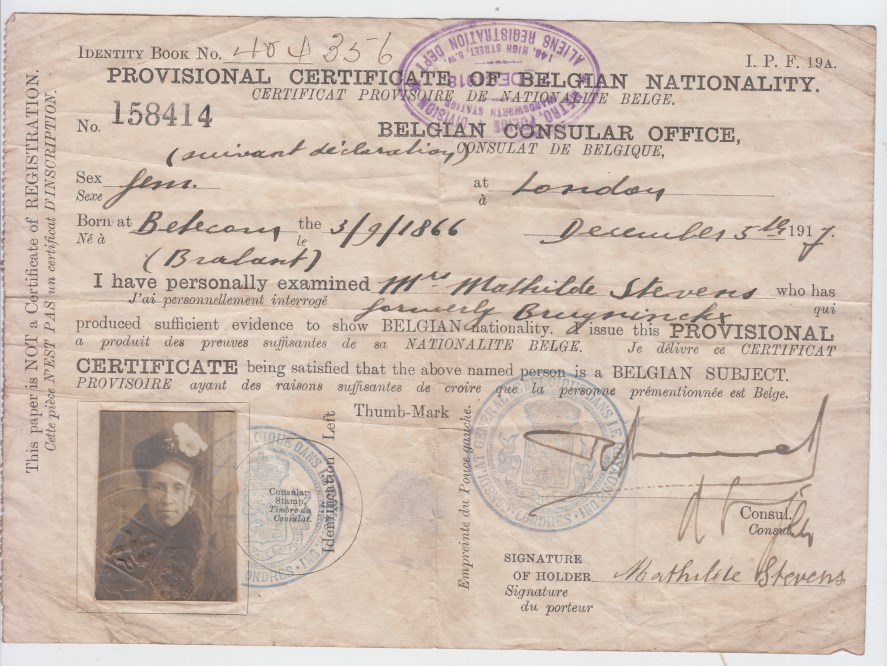 IDENTITY BOOK No. 404356
I. P. F. 19A.
METRO. POLICE DIVISION
WANDSWORTH STATION
DEC 1918
146, HIGH STREET, S.W.
ALIENS REGISTRATION DEPT
PROVISIONAL CERTIFICATE OF BELGIAN NATIONALITY.
CERTIFICAT PROVISOIRE DE NATIONALITE BELGE.
No. 158414
BELGIAN CONSULAR OFFICE,
CONSULAT DE BELGIQUE,
(suivant déclaration)
Sex fem. at London
Sexe à
Born at Betecom the 3/9/1866 December 5th 1917.
Né à le
(Brabant)
I have personally examined Mrs Mathilde Stevens who has
J'ai personnellement interrogé formerly Bruyninckx qui
produced sufficient evidence to show BELGIAN nationality. I issue this PROVISIONAL
a produit des preuves suffisantes de sa NATIONALITE BELGE. Je délivre ce CERTIFICAT
CERTIFICATE being satisfied that the above named person is a BELGIAN SUBJECT.
PROVISOIRE ayant des raisons suffisantes de croire que la personne prémentionnée est Belge.
This paper is NOT a Certificate of REGISTRATION.
Cette pièce N'EST PAS un certificat D'INSCRIPTION.
Consular
Stamp.
Timbre du
Consulat.
LONDRES
Identification Left
Thumb-Mark
Empreinte du Pouce gauche.
CONSULAT GENERAL DE BELGIQUE DANS LE ROYAUME UNI
LONDRES
Consul.
Consul.
SIGNATURE
OF HOLDER Mathilde Stevens
Signature
du porteur